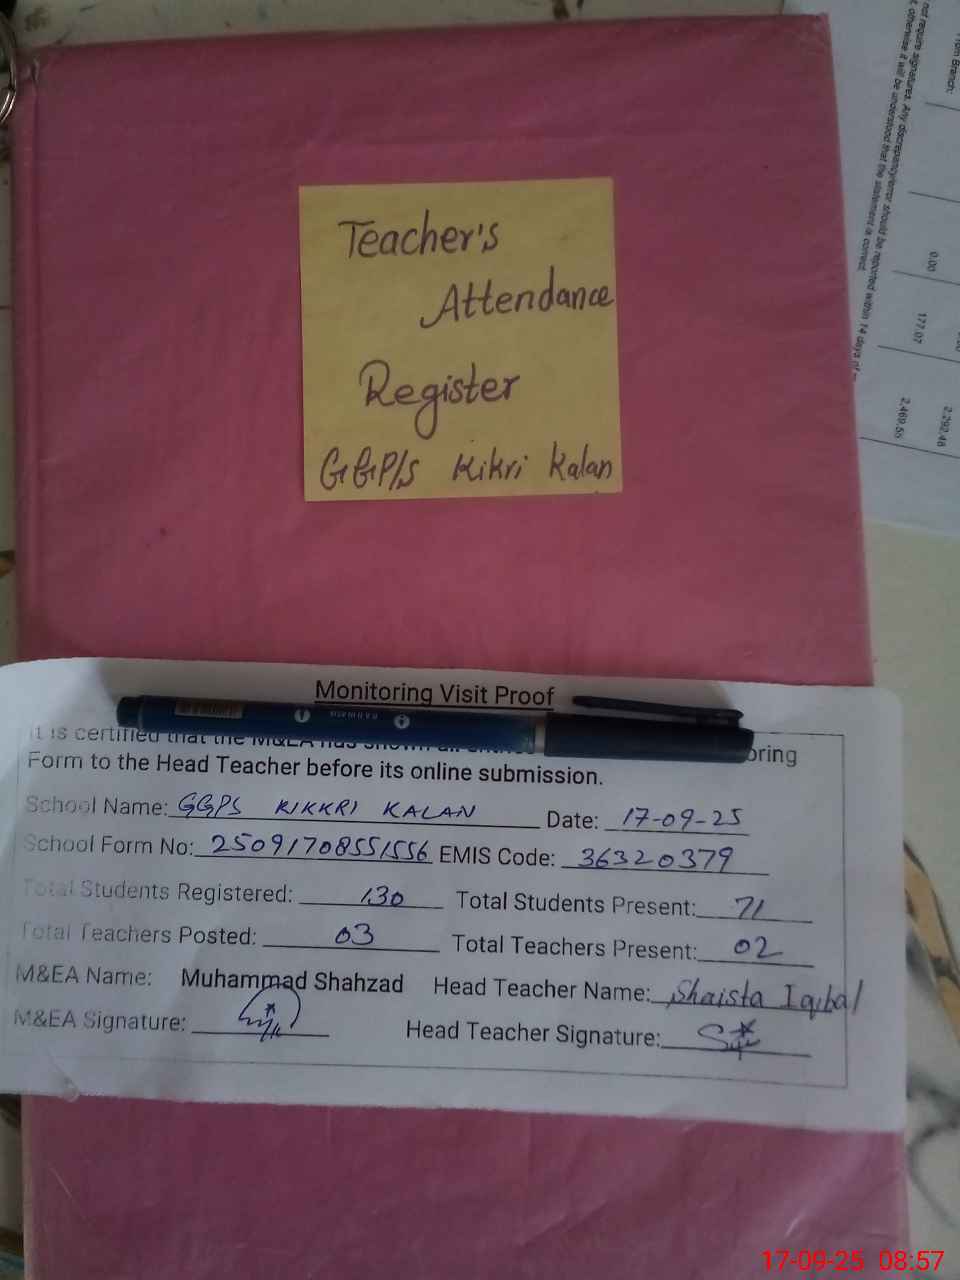 Teacher's
Attendance
Register
GGP/S Kikri Kalan
not require signatures. Any discrepancy/error should be reported within 14 days of
otherwise it will be understood that the statement is correct.
From Branch:
0.00
177.07
2,469.55
2,292.48
Monitoring Visit Proof
It is certified that the M&EA has shown all entries oring
Form to the Head Teacher before its online submission.
School Name: GGPS KIKKRI KALAN Date: 17-09-25
School Form No: 25091708551556 EMIS Code: 36320379
Total Students Registered: 130 Total Students Present: 71
Total Teachers Posted: 03 Total Teachers Present: 02
M&EA Name: Muhammad Shahzad Head Teacher Name: Shaista Iqbal
M&EA Signature: Head Teacher Signature:
17-09-25 08:57